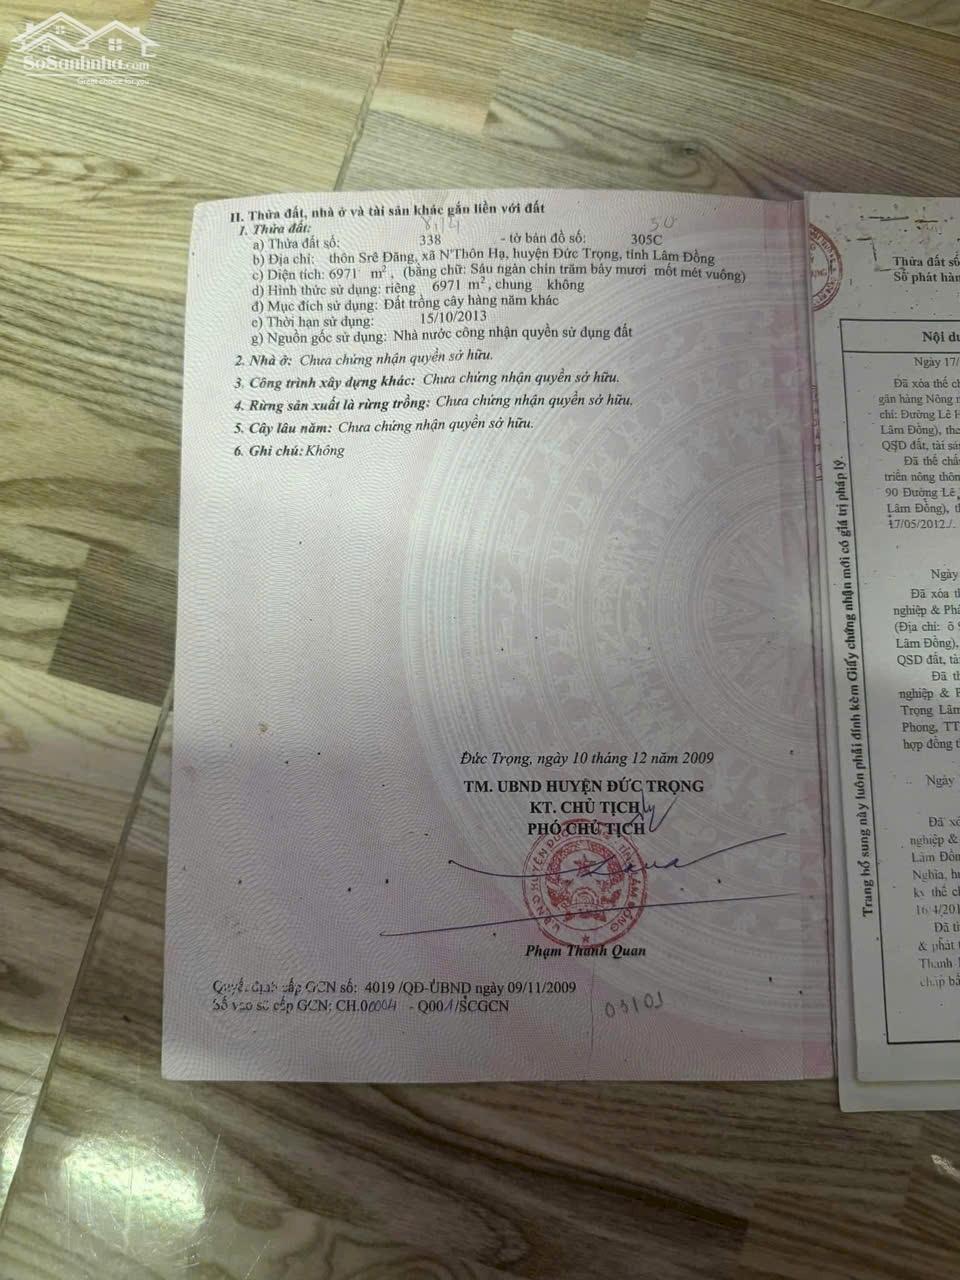 SoSanhnha.com
Great choice for you
II. Thửa đất, nhà ở và tài sản khác gắn liền với đất
1. Thửa đất:
a) Thửa đất số: 338 - tờ bản đồ số: 305C
b) Địa chỉ: thôn Srê Đăng, xã N'Thôn Hạ, huyện Đức Trọng, tỉnh Lâm Đồng
c) Diện tích: 6971 m², (bằng chữ: Sáu ngàn chín trăm bảy mươi mốt mét vuông)
d) Hình thức sử dụng: riêng 6971 m², chung không
đ) Mục đích sử dụng: Đất trồng cây hàng năm khác
e) Thời hạn sử dụng: 15/10/2013
g) Nguồn gốc sử dụng: Nhà nước công nhận quyền sử dụng đất
2. Nhà ở: Chưa chứng nhận quyền sở hữu.
3. Công trình xây dựng khác: Chưa chứng nhận quyền sở hữu.
4. Rừng sản xuất là rừng trồng: Chưa chứng nhận quyền sở hữu.
5. Cây lâu năm: Chưa chứng nhận quyền sở hữu.
6. Ghi chú: Không
Đức Trọng, ngày 10 tháng 12 năm 2009
TM. UBND HUYỆN ĐỨC TRỌNG
KT. CHỦ TỊCH
PHÓ CHỦ TỊCH
Phạm Thanh Quan
Quyết định cấp GCN số: 4019 /QĐ-UBND ngày 09/11/2009
Số vào sổ cấp GCN: CH.00004 - Q001/SCGCN
03101
Thửa đất số
Số phát hàn
Trang bổ sung này luôn phải đính kèm Giấy chứng nhận mới có giá trị pháp lý.
Nội du
Ngày 17/
Đã xóa thế ch
gân hàng Nông n
chỉ: Đường Lê H
Lâm Đồng), the
QSD đất, tài sả
Đã thế chấ
triển nông thôn
90 Đường Lê
Lâm Đồng), t
17/05/2012./.
Ngày
Đã xóa th
nghiệp & Phá
(Địa chỉ: ô 9
Lâm Đồng),
QSD đất, tà
Đã th
nghiệp & P
Trọng Lâm
Phong, TT
hợp đồng t
Ngày
Đã xó
nghiệp &
Lâm Đồn
Nghĩa, h
ký thế c
16/4/201
Đã t
& phát
Thanh
chấp bằ